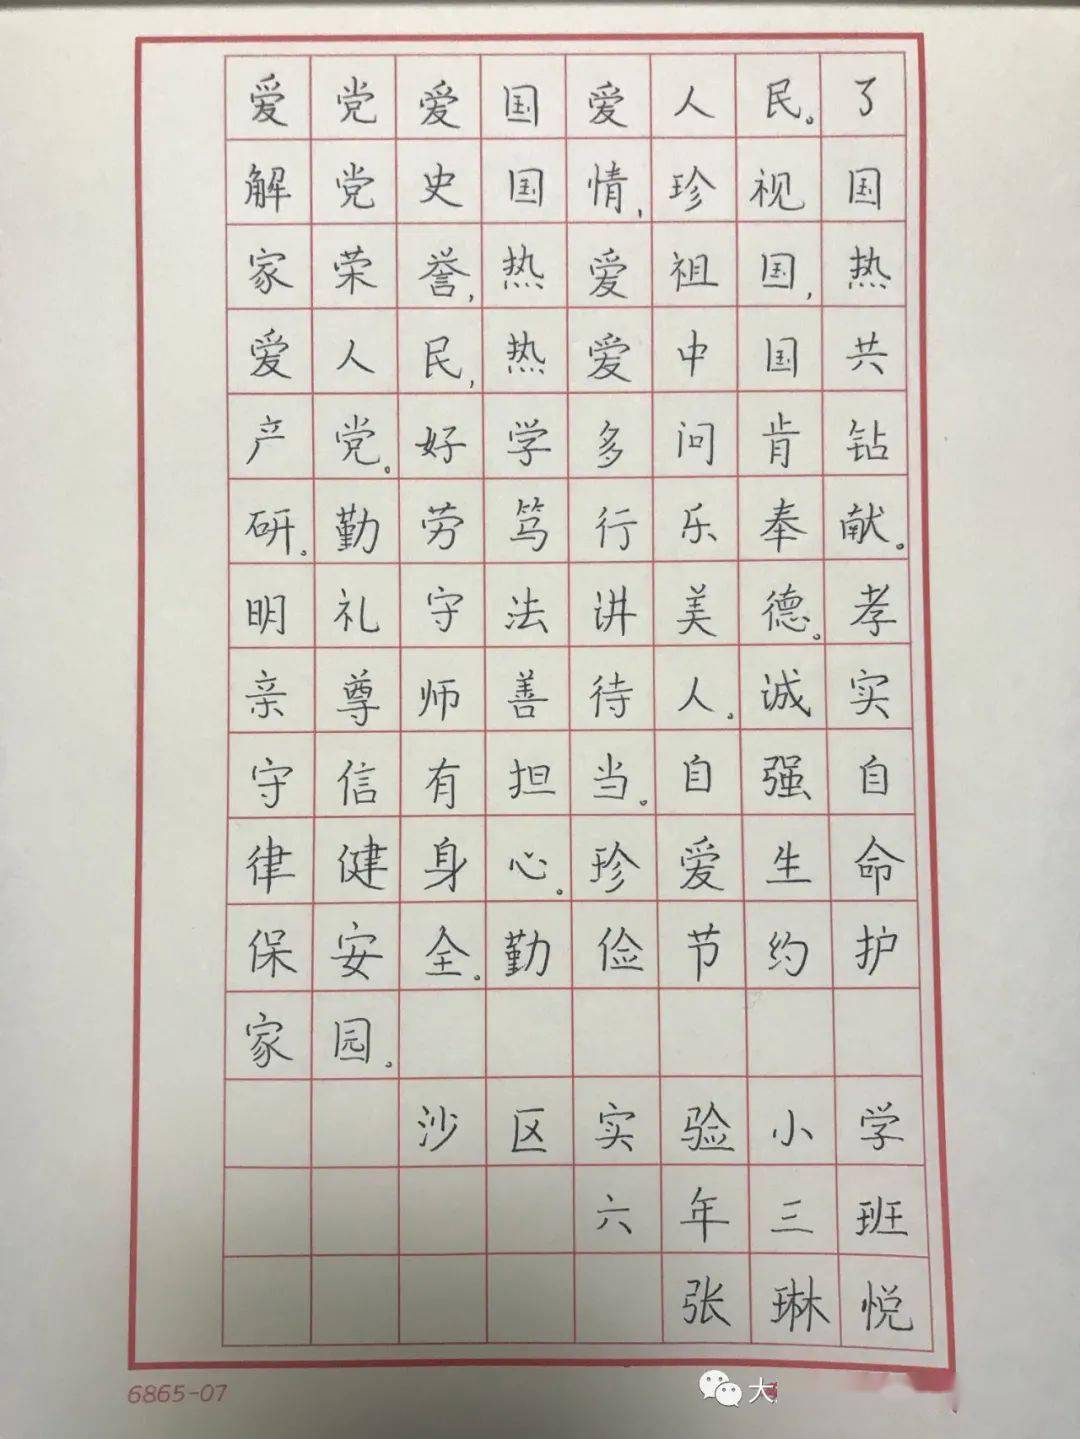 爱党爱国爱人民。了
解党史国情,珍视国
家荣誉,热爱祖国,热
爱人民,热爱中国共
产党。好学多问肯钻
研。勤劳笃行乐奉献。
明礼守法讲美德。孝
亲尊师善待人。诚实
守信有担当。自强自
律健身心。珍爱生命
保安全。勤俭节约护
家园。
沙区实验小学
六年三班
张琳悦
6865-07
大